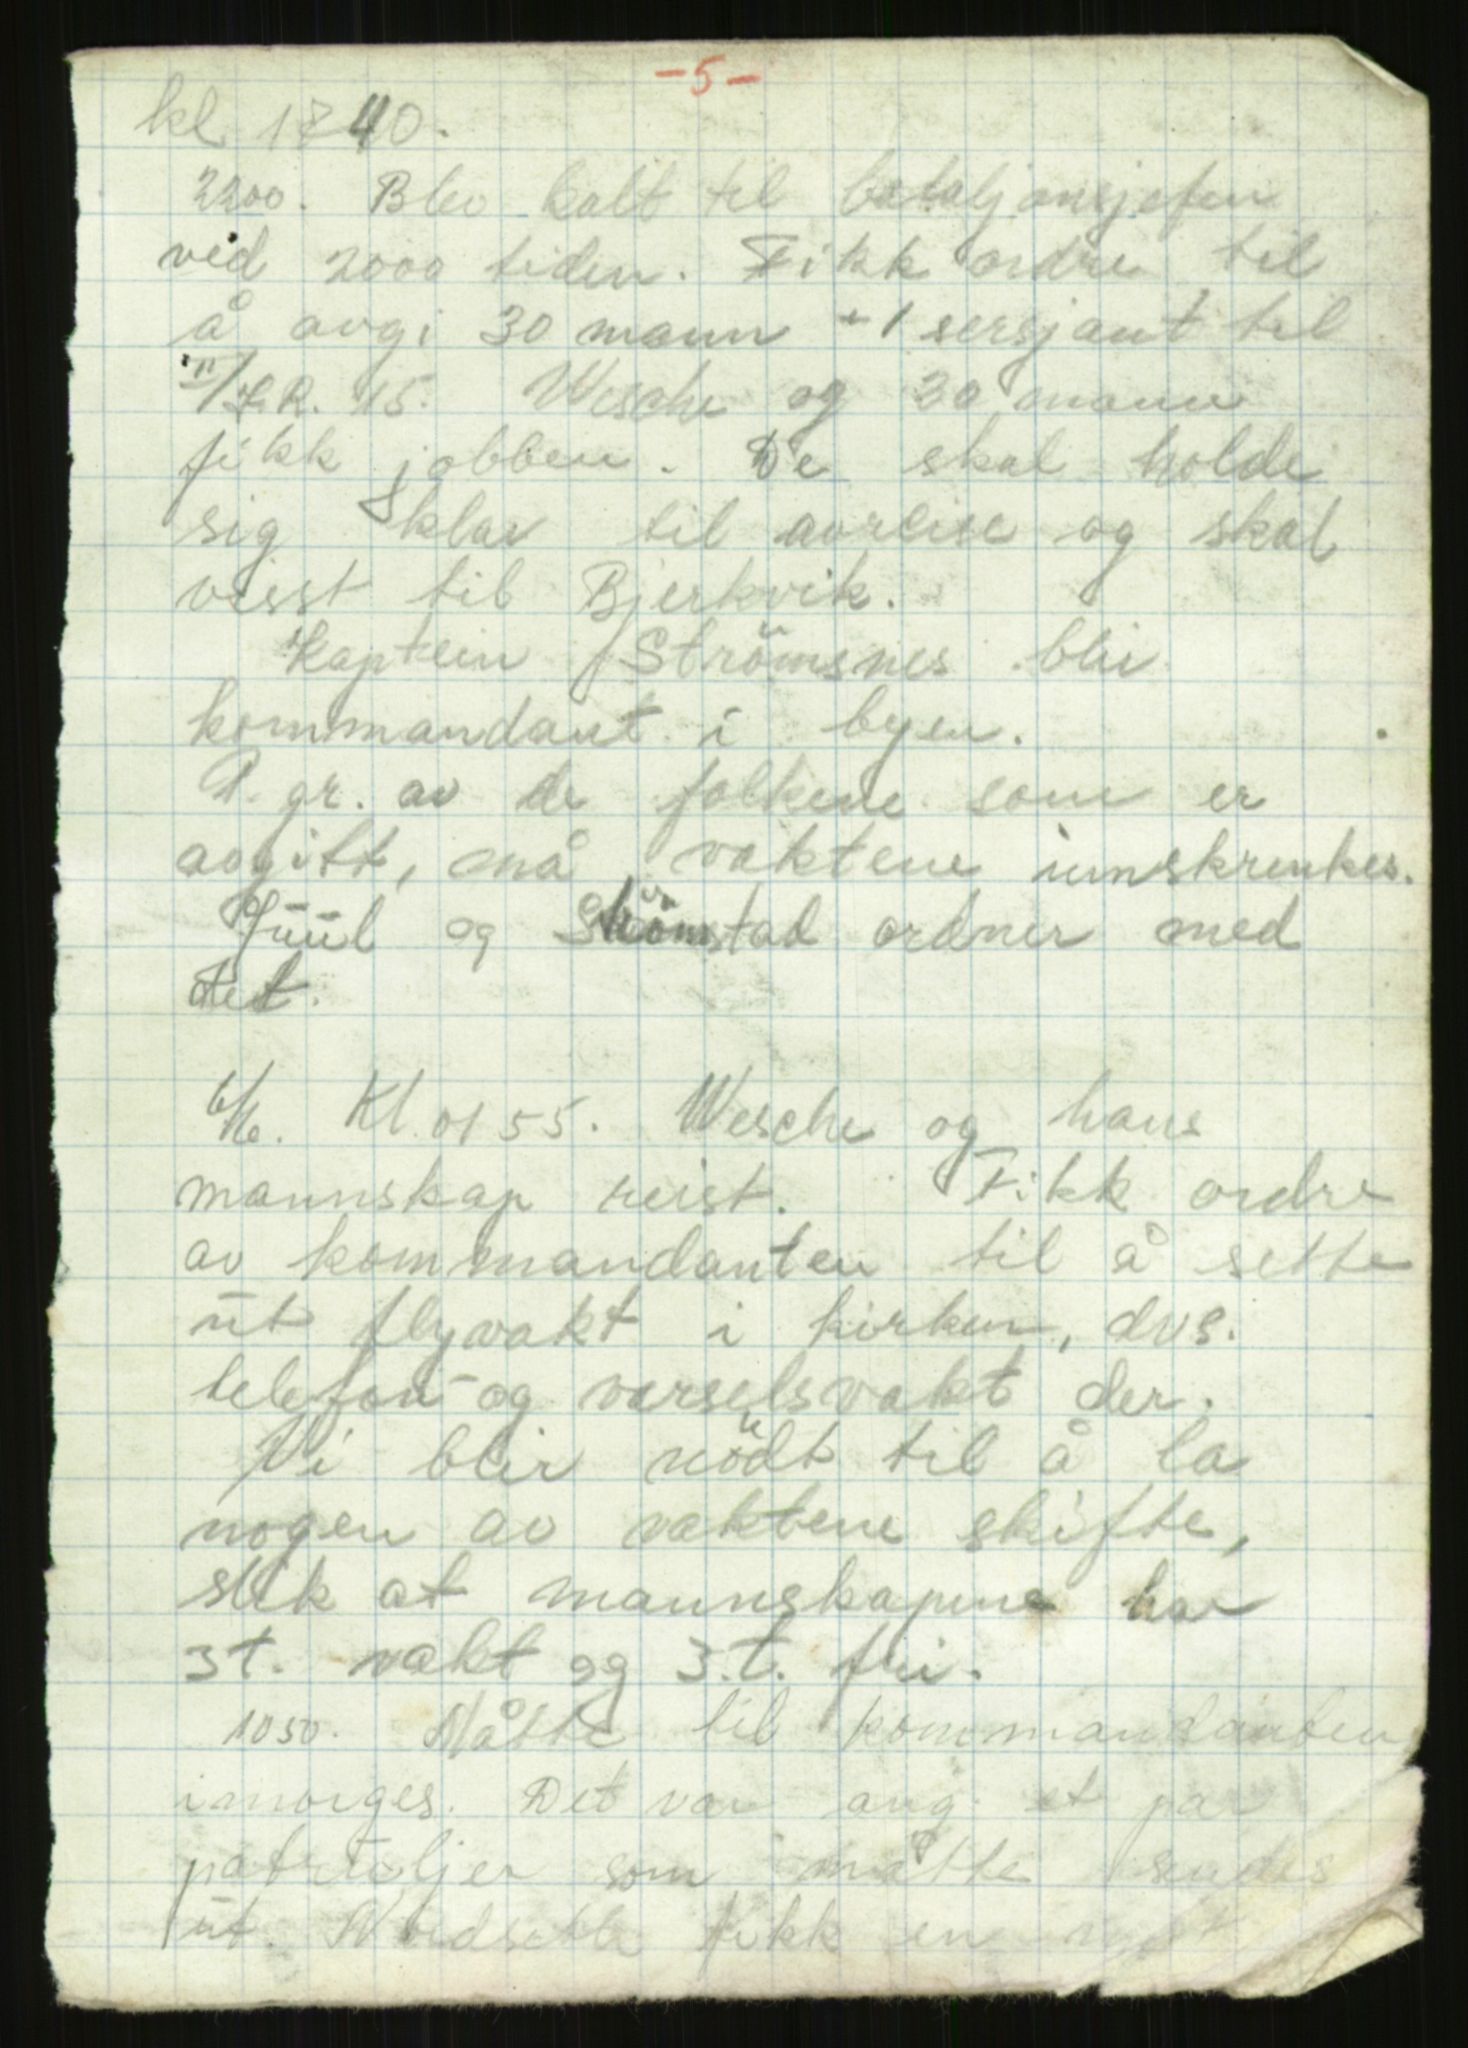 -5-
kl 1840.
2200. Blev kalt til bataljonsjefen
ved 2000 tiden. Fikk ordre til
å avgi 30 mann + 1 sersjant til
II/I.R. 15. Wesche og 30 mann
fikk jobben. De skal holde
sig klar til avreise og skal
visst til Bjerkvik.
Kaptein Strömsnes blir
kommandant i byen.
P. gr. av de folkene som er
avgitt, må vaktene innskrenkes.
Juul og Strömstad ordner med
det.
6/6. Kl. 0155. Wesche og hans
mannskap reist. Fikk ordre
av kommandanten til å sette
ut flyvakt i kirken, dvs.
telefon- og varselsvakt der.
Vi blir nödt til å la
nogen av vaktene skifte,
slik at mannskapene har
3 t. vakt og 3. t. fri.
1050. Måtte til kommandanten
imorges. Det var ang. et par
patruljer som måtte sendes
ut. fikk en